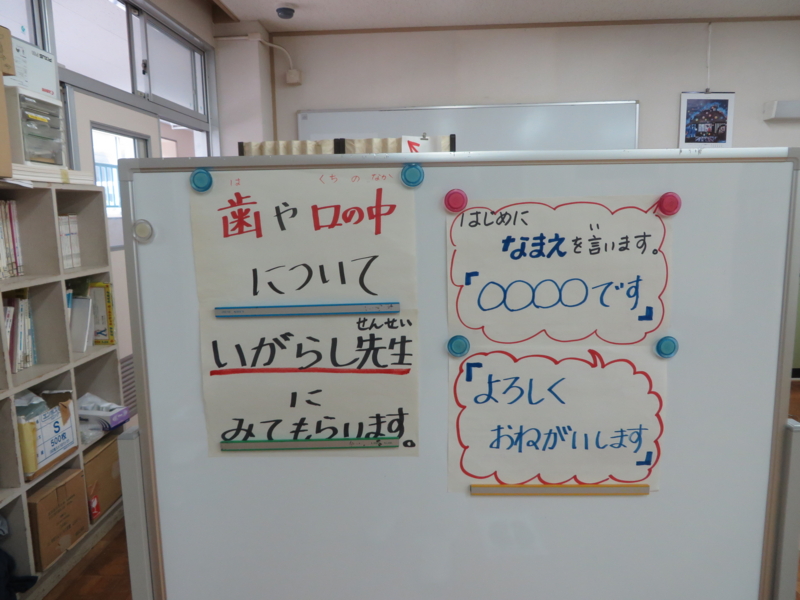 は くちの なか
歯や口の中
について
せんせい
いがらし先生
に
みてもらいます。
はじめに
い
なまえを言います。
「〇〇〇〇です」
「よろしく
おねがいします」
S
500枚